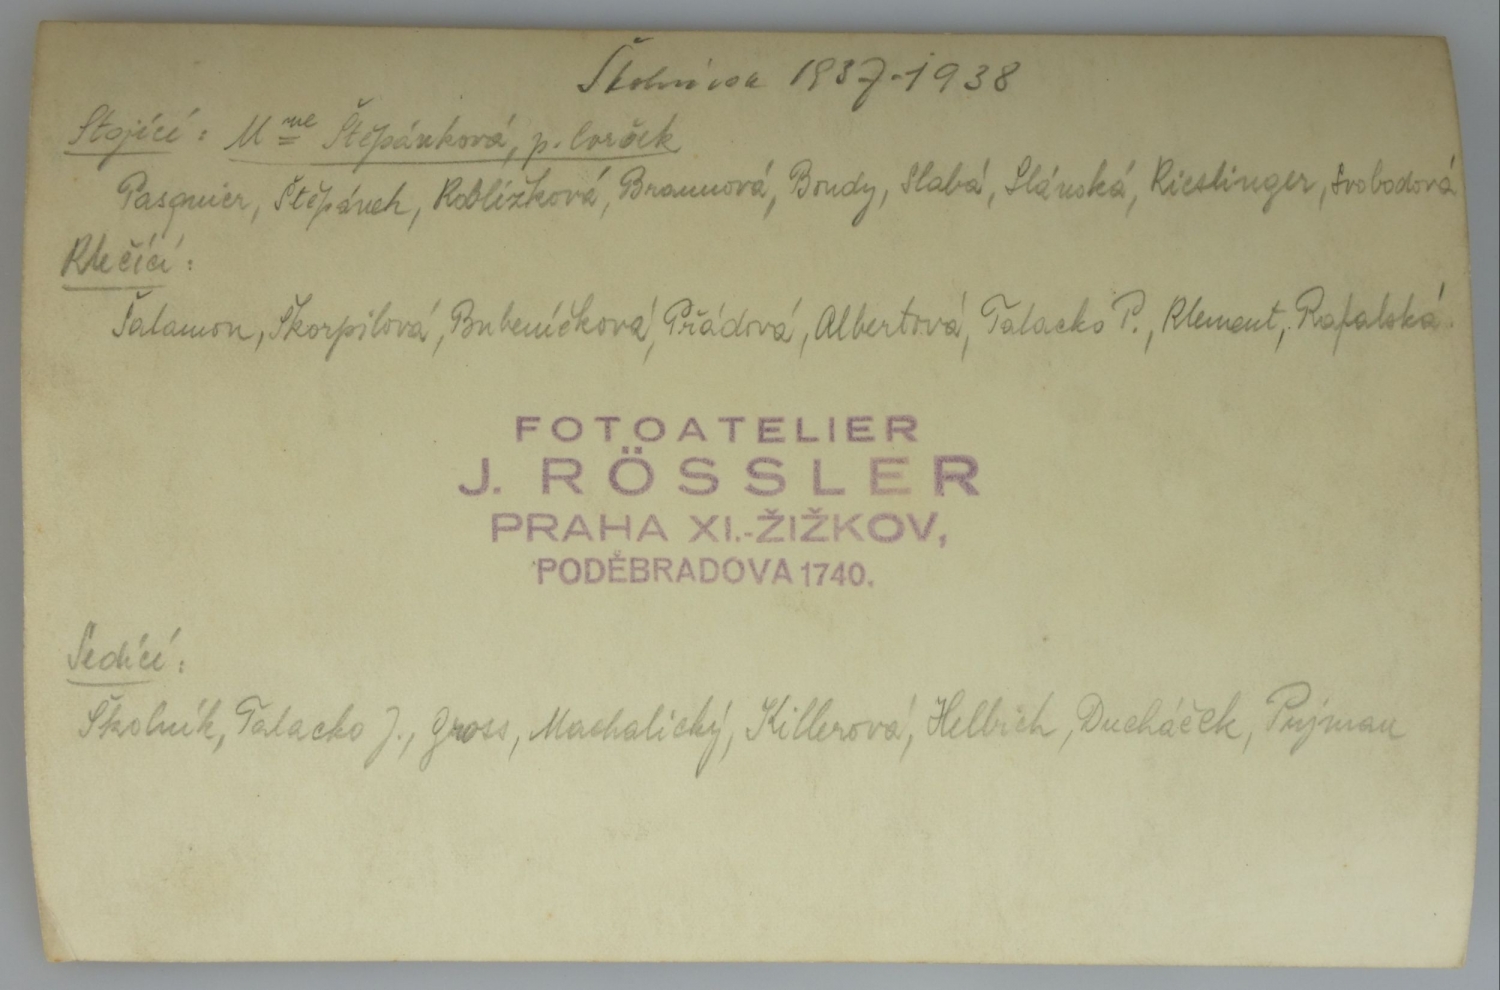 1937-1938
Stojící: Mme Štěpánková, p.
Pasquier, Štěpánek, Koblížková, Braunová, Bondy, Slabá, Slánská, Kieslinger, Svobodová
Klečící:
Šalamon, Škorpilová, Bubeníčková, Přádová, Albertová, Talacko P., Klement, Rafalská.
FOTOATELIER
J. RÖSSLER
PRAHA XI.-ŽIŽKOV,
PODĚBRADOVA 1740.
Sedící:
Školník, Talacko J., Gross, Machalický, Killerová, Helbich, Ducháček, Pujman